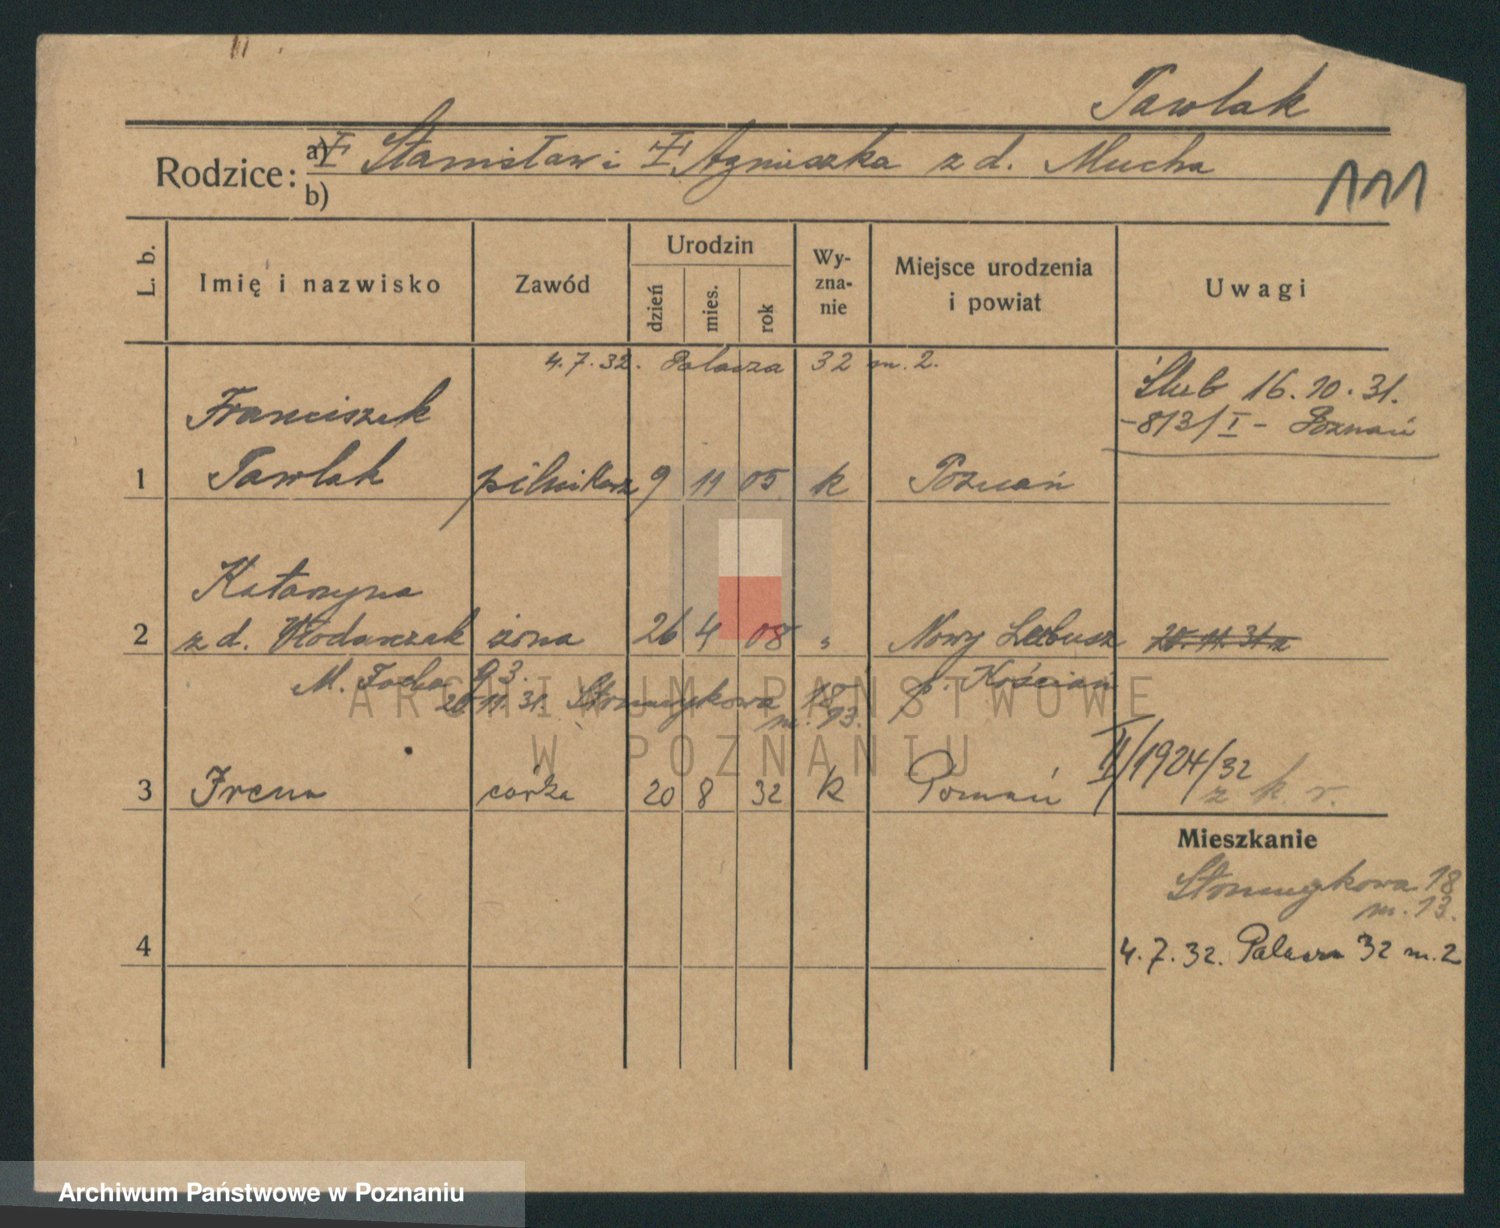 Pawlak
Rodzice: a) Stanisław i Agnieszka z d. Mucha
b)
111
L. b.
Imię i nazwisko
Zawód
Urodzin
dzień
mies.
rok
Wy-
zna-
nie
Miejsce urodzenia
i powiat
Uwagi
4.7.32. Palacza 32 m. 2.
Ślub 16.10.31.
-813/I- Poznań
Franciszek
1 Pawlak pilnikarz 9 11 05 k Poznań
Katarzyna
2 z d. Włodarczak żona 26 4 08 " Nowy Lubusz 20.11.31
M. Focha 93. p. Kościan
20.11.31. 18
m. 13.
3 Irena córka 20 8 32 k Poznań II/1924/32
z k. r.
Mieszkanie
18
m. 13.
4
4.7.32. Palacza 32 m. 2
ARCHIWUM PAŃSTWOWE
W POZNANIU
Archiwum Państwowe w Poznaniu